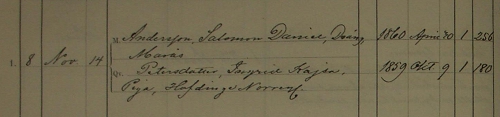 M. Andersson, Salomon Daniel, Dräng, 1860 April 20 1 256
1. 8 Nov. 14 Marås
Q. Petersdotter, Ingrid Kajsa, 1859 Okt 9 1 180
Piga, Hofdinge Norreg.